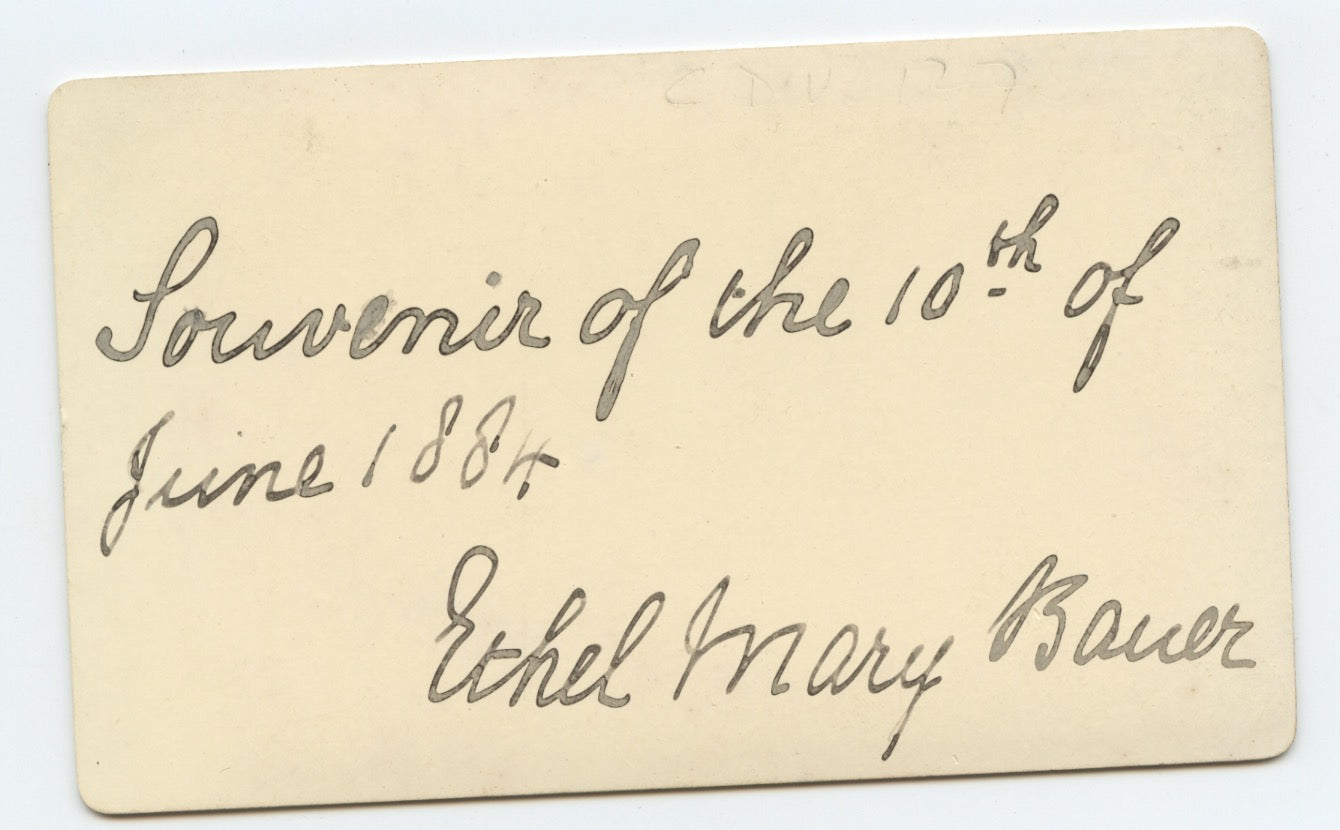 CDV 127
Souvenir of the 10th of
June 1884
Ethel Mary Bauer